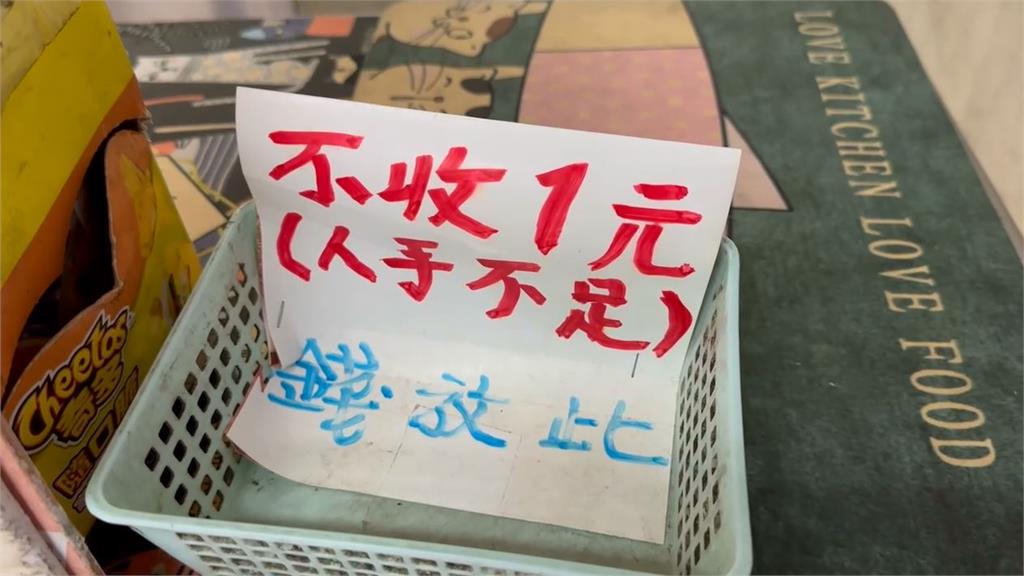 不收1元
(人手不足)
錢放此
LOVE KITCHEN LOVE FOOD
Cheetos
奇多